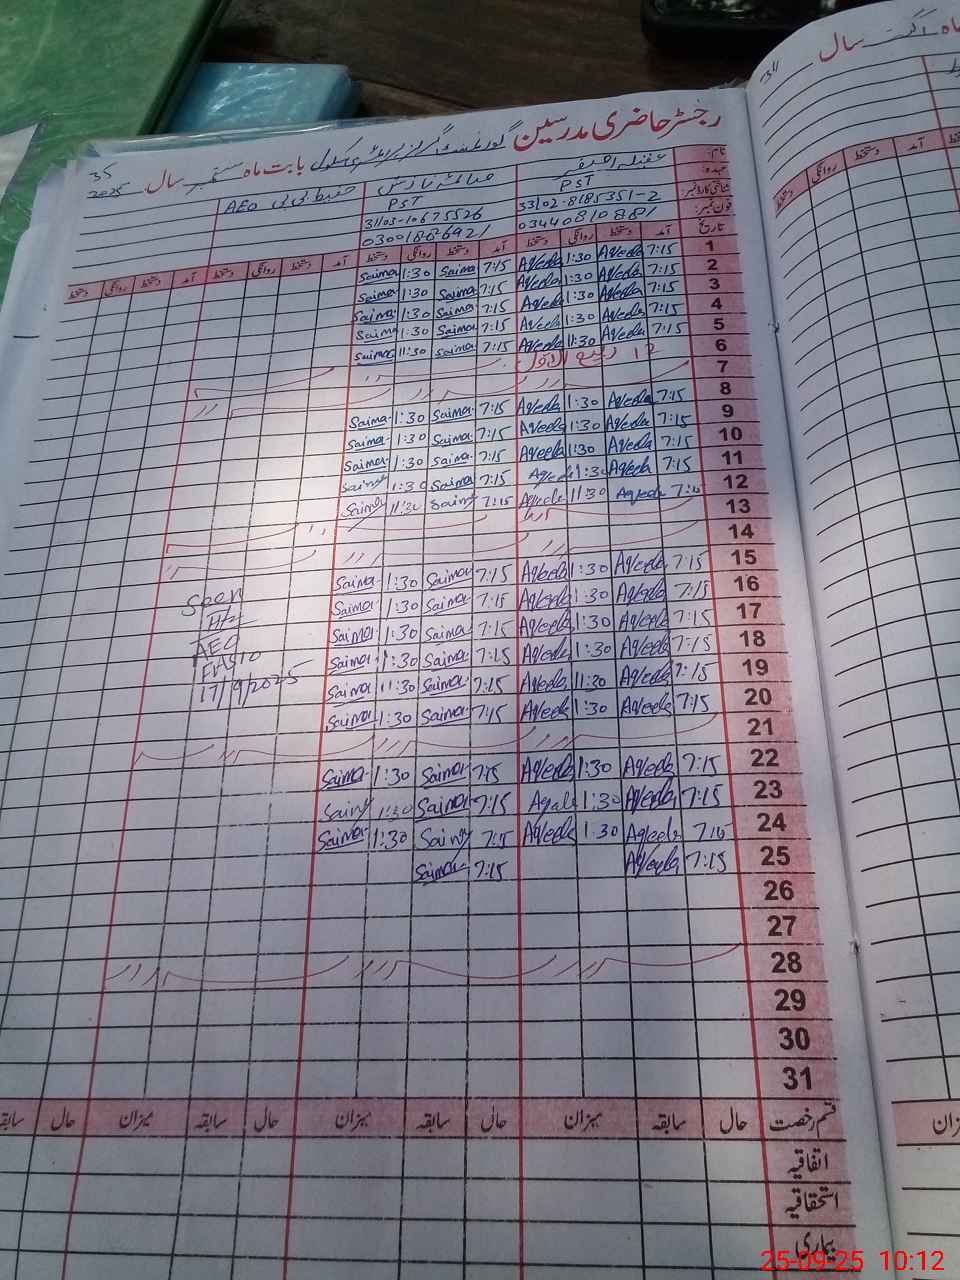 رجسٹر حاضری مدرسین گورنمنٹ گرلز پرائمری سکول بابت ماہ ستمبر سال 2025
35
نام:
عہدہ: PST PST حفیظ بی بی AEO
شناختی کارڈ نمبر: 33102-8185351-2 31103-10675526
فون نمبر: 03440810881 03001866921
تاریخ آمد دستخط روانگی دستخط آمد دستخط روانگی دستخط آمد دستخط روانگی دستخط آمد دستخط روانگی دستخط
1 7:15 Aqeeda 1:30 Aqeeda 7:15 Saima 1:30 Saima
2 7:15 Aqeeda 1:30 Aqeeda 7:15 Saima 1:30 Saima
3 7:15 Aqeeda 1:30 Aqeeda 7:15 Saima 1:30 Saima
4 7:15 Aqeeda 1:30 Aqeeda 7:15 Saima 1:30 Saima
5 7:15 Aqeeda 11:30 Aqeeda 7:15 Saima 11:30 Saima
6 12 ربیع الاول
7
8 7:15 Aqeeda 1:30 Aqeeda 7:15 Saima 1:30 Saima
9 7:15 Aqeeda 1:30 Aqeeda 7:15 Saima 1:30 Saima
10 7:15 Aqeeda 1:30 Aqeeda 7:15 Saima 1:30 Saima
11 7:15 Aqeeda 1:30 Aqeeda 7:15 Saima 1:30 Saima
12 7:15 Aqeeda 11:30 Aqeeda 7:15 Saima 11:30 Saima
13
14
15 7:15 Aqeeda 1:30 Aqeeda 7:15 Saima 1:30 Saima
16 7:15 Aqeeda 1:30 Aqeeda 7:15 Saima 1:30 Saima
17 7:15 Aqeeda 1:30 Aqeeda 7:15 Saima 1:30 Saima
18 7:15 Aqeeda 1:30 Aqeeda 7:15 Saima 1:30 Saima
19 7:15 Aqeeda 11:30 Aqeeda 7:15 Saima 11:30 Saima
20 7:15 Aqeeda 1:30 Aqeeda 7:15 Saima 1:30 Saima
Seen
AEO
17/9/2025
21
22 7:15 Aqeeda 1:30 Aqeeda 7:15 Saima 1:30 Saima
23 7:15 Aqeeda 1:30 Aqeeda 7:15 Saima 1:30 Saima
24 7:15 Aqeeda 1:30 Aqeeda 7:15 Saima 1:30 Saima
25 7:15 Aqeeda 7:15 Saima
26
27
28
29
30
31
قسم رخصت حال سابقہ میزان حال سابقہ میزان حال سابقہ میزان حال سابقہ
اتفاقیہ
استحقاقیہ
بیماری
ماہ اگست سال
34
آمد دستخط روانگی دستخط
میزان
25-09-25 10:12